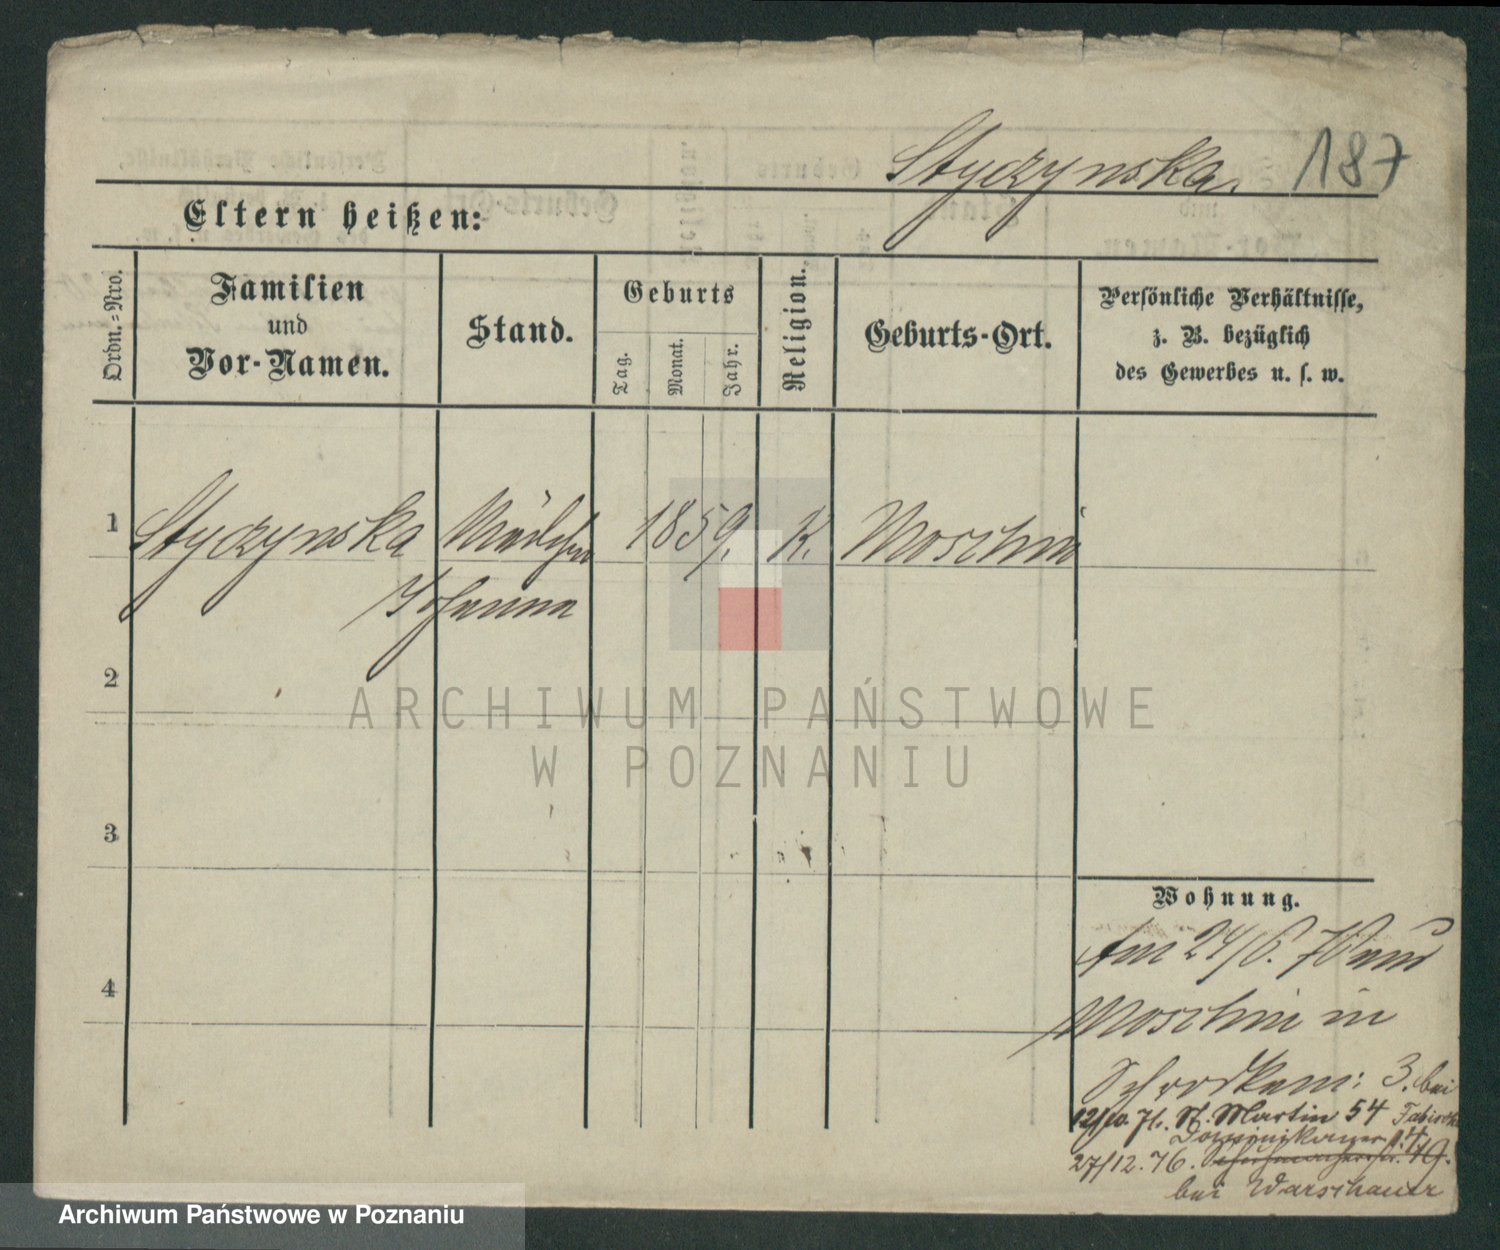 Styczynska. 187
Eltern heißen:
Ordn.-Nro.
Familien
und
Vor-Namen.
Stand.
Geburts
Tag.
Monat.
Jahr.
Religion.
Geburts-Ort.
Persönliche Verhältnisse,
z. B. bezüglich
des Gewerbes u. s. w.
1 Styczynska Mädchen 1859. K. Moschin
Johanna
2
3
4
Wohnung.
Am 24/6. 76 aus
Moschin in
Schrodkam: 3. bei
12/10. 76. St. Martin 54
Dominikaner
27/12. 76.
bei Warschauer
ARCHIWUM PAŃSTWOWE
W POZNANIU
Archiwum Państwowe w Poznaniu